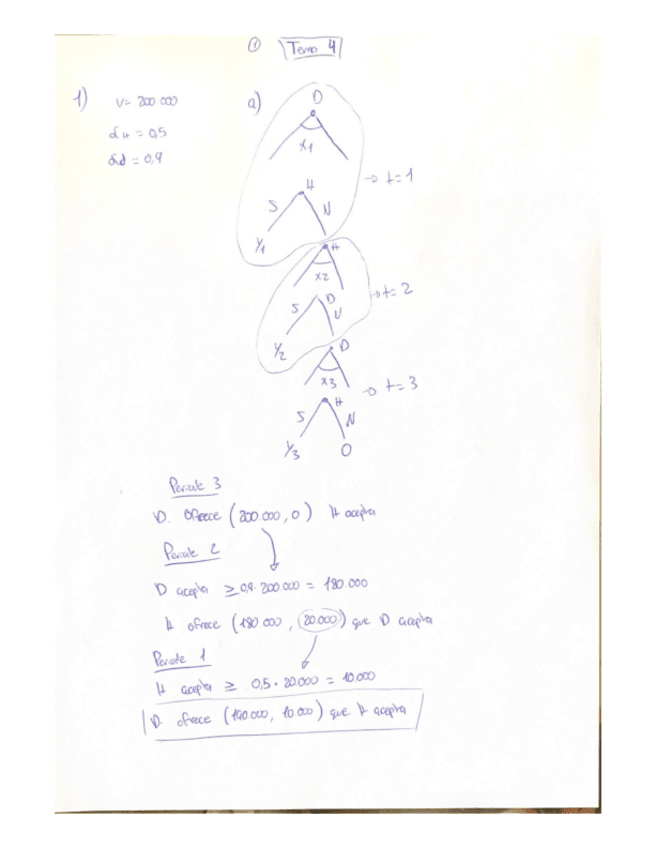 ① Tema 4
1) V= 200 000 a) D
δH = 0,5 X1
δd = 0,9 H → t=1
S N
Y1 H
X2
S D N → t=2
Y2 D
X3 → t=3
H
S N
Y3 O
Periode 3
D. ofrece (200.000, 0) H acepta
Periode 2
D acepta ≥ 0,9 · 200 000 = 180 000
H ofrece (180 000, 20.000) que D acepta
Periode 1
H acepta ≥ 0,5 · 20.000 = 10.000
D ofrece (190.000, 10 000) que H acepta